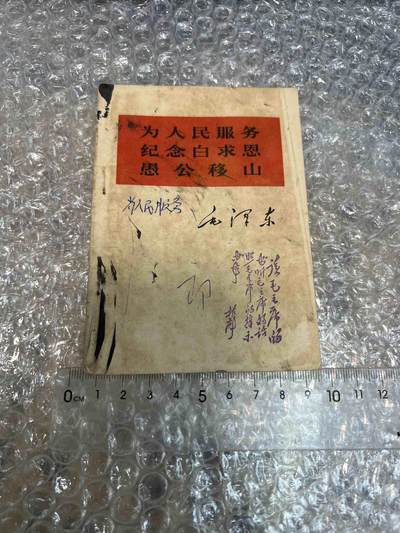 为人民服务
纪念白求恩
愚公移山
为人民服务
毛泽东
读毛主席的
书听毛主席的话
照毛主席的指示
办事
0CM 1 2 3 4 5 6 7 8 9 10 11 12